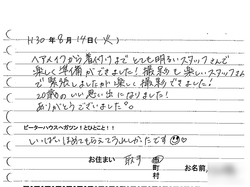 H30年8月14日(火)
ヘアメイクから着付けまでとても明るいスタッフさんで
楽しく準備ができました!撮影も楽しいスタッフさん
で緊張しましたが楽しく撮影できました!
20歳のいい思い出になりました!
ありがとうございました。
ピーターハウスへガツン!とひとこと!!
いっぱいほめてもらえてうれしかったです
お住まい 取手 市 町 村 お名前